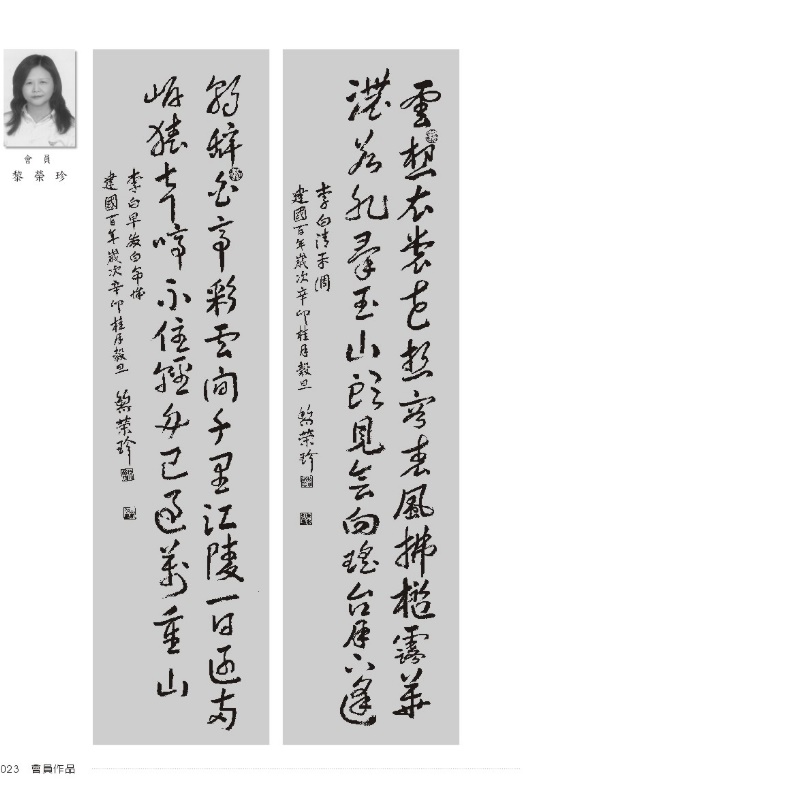 會員
黎榮珍
雲想衣裳花想容春風拂檻露華
濃若非羣玉山頭見會向瑤台月下逢
李白清平調
建國百年歲次辛卯桂月穀旦 黎榮珍
朝辭白帝彩雲間千里江陵一日還兩
岸猿聲啼不住輕舟已過萬重山
李白早發白帝城
建國百年歲次辛卯桂月穀旦 黎榮珍
023 會員作品